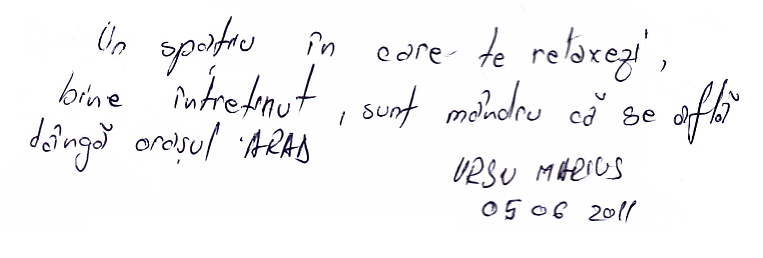 Un spațiu în care te relaxezi,
bine întreținut, sunt mândru că se află
lângă orașul ARAD
URSU MARIUS
05 06 2011